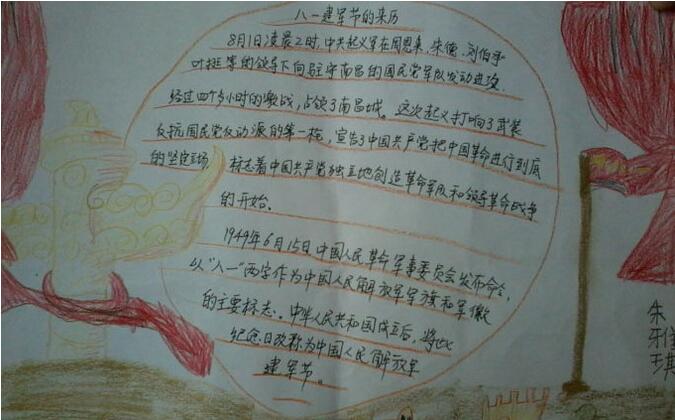 八一建军节的来历
8月1日凌晨2时,中共起义军在周恩来、朱德、刘伯承
叶挺等的领导下向驻守南昌的国民党军队发动进攻.
经过四个多小时的激战,占领了南昌城。这次起义打响了武装
反抗国民党反动派的第一枪,宣告了中国共产党把中国革命进行到底
的坚定立场.标志着中国共产党独立地创造革命军队和领导革命战争
的开始。
1949年6月15日中国人民革命军事委员会发布命令,
以“八一”两字作为中国人民解放军军旗和军徽
的主要标志。中华人民共和国成立后,将此
纪念日改称为中国人民解放军
建军节。
朱雅琪